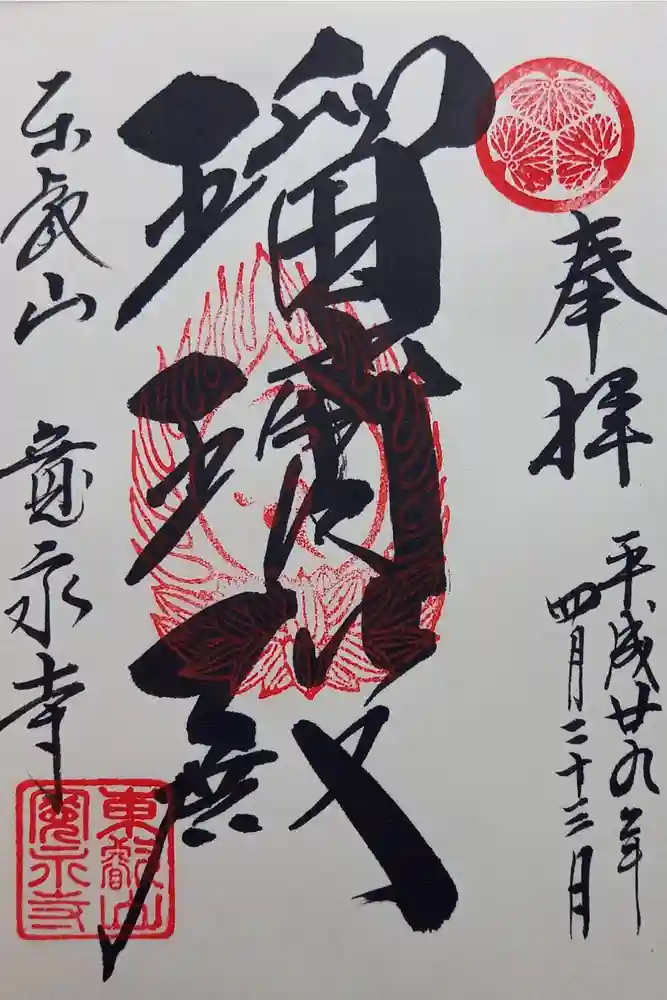 奉拝
平成廿九年
四月二十三日
瑠璃殿
東叡山 寛永寺
東叡山
寛永寺